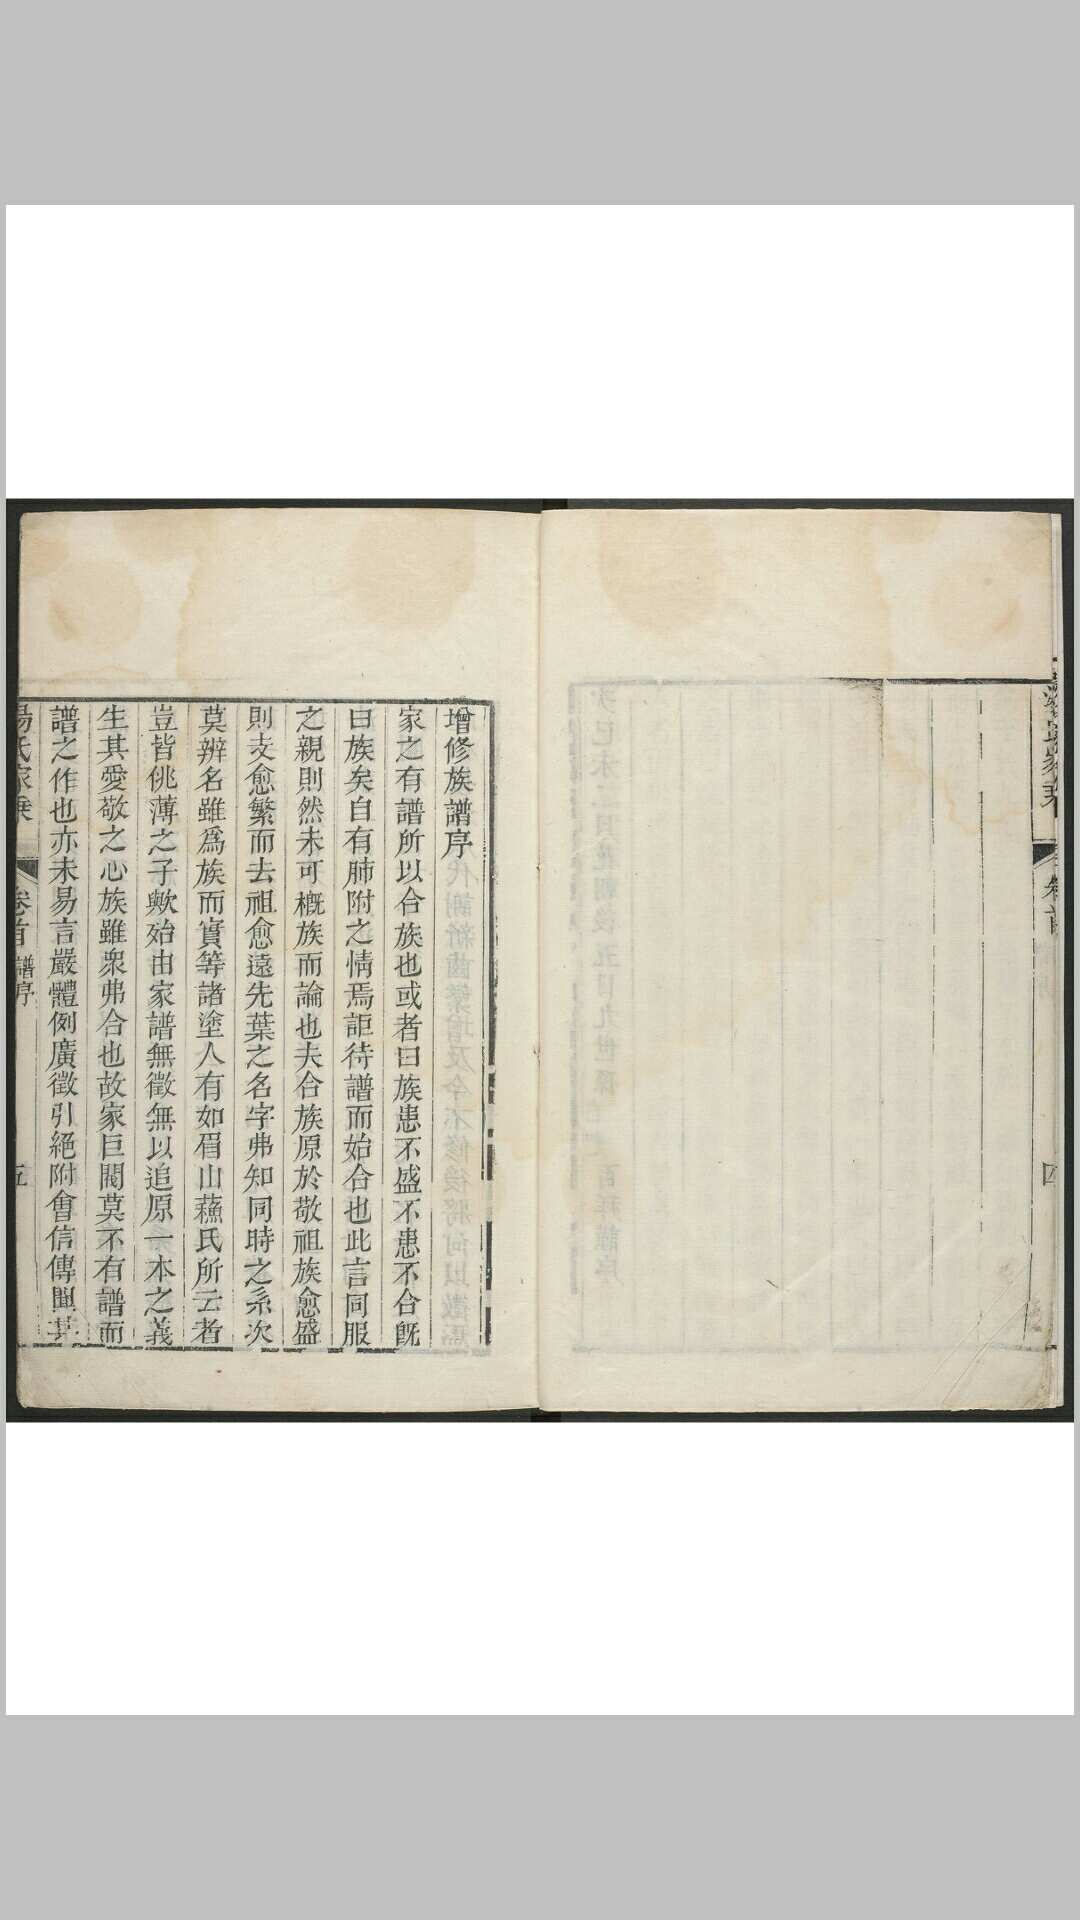 卷首
四
增修族譜序
家之有譜所以合族也或者曰族患不盛不患不合旣
曰族矣自有肺附之情焉詎待譜而始合也此言同服
之親則然未可槪族而論也夫合族原於敬祖族愈盛
則支愈繁而去祖愈遠先葉之名字弗知同時之系次
莫辨名雖爲族而實等諸塗人有如眉山蘓氏所云者
豈皆佻薄之子歟殆由家譜無徵無以追原一本之義
生其愛敬之心族雖衆弗合也故家巨閥莫不有譜而
譜之作也亦未易言嚴體例廣徵引絕附會信傳聞其
湯氏家乘 卷首 譜序 五